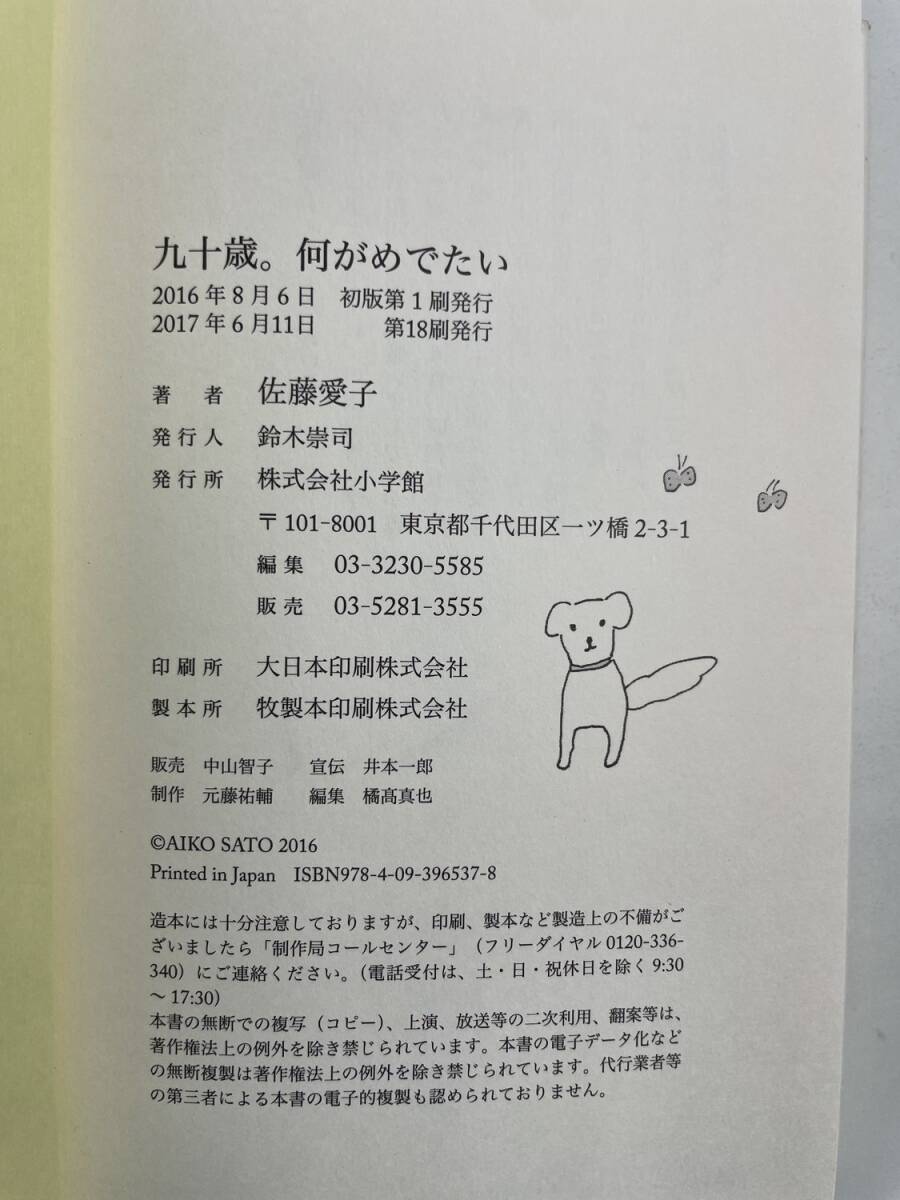 九十歳。何がめでたい
2016年8月6日　初版第1刷発行
2017年6月11日　第18刷発行
著　者　佐藤愛子
発行人　鈴木崇司
発行所　株式会社小学館
〒101-8001　東京都千代田区一ツ橋2-3-1
編集　03-3230-5585
販売　03-5281-3555
印刷所　大日本印刷株式会社
製本所　牧製本印刷株式会社
販売　中山智子　宣伝　井本一郎
制作　元藤祐輔　編集　橘髙真也
©AIKO SATO 2016
Printed in Japan　ISBN978-4-09-396537-8
造本には十分注意しておりますが、印刷、製本など製造上の不備がご
ざいましたら「制作局コールセンター」（フリーダイヤル0120-336-
340）にご連絡ください。（電話受付は、土・日・祝休日を除く9:30
～17:30）
本書の無断での複写（コピー）、上演、放送等の二次利用、翻案等は、
著作権法上の例外を除き禁じられています。本書の電子データ化など
の無断複製は著作権法上の例外を除き禁じられています。代行業者等
の第三者による本書の電子的複製も認められておりません。